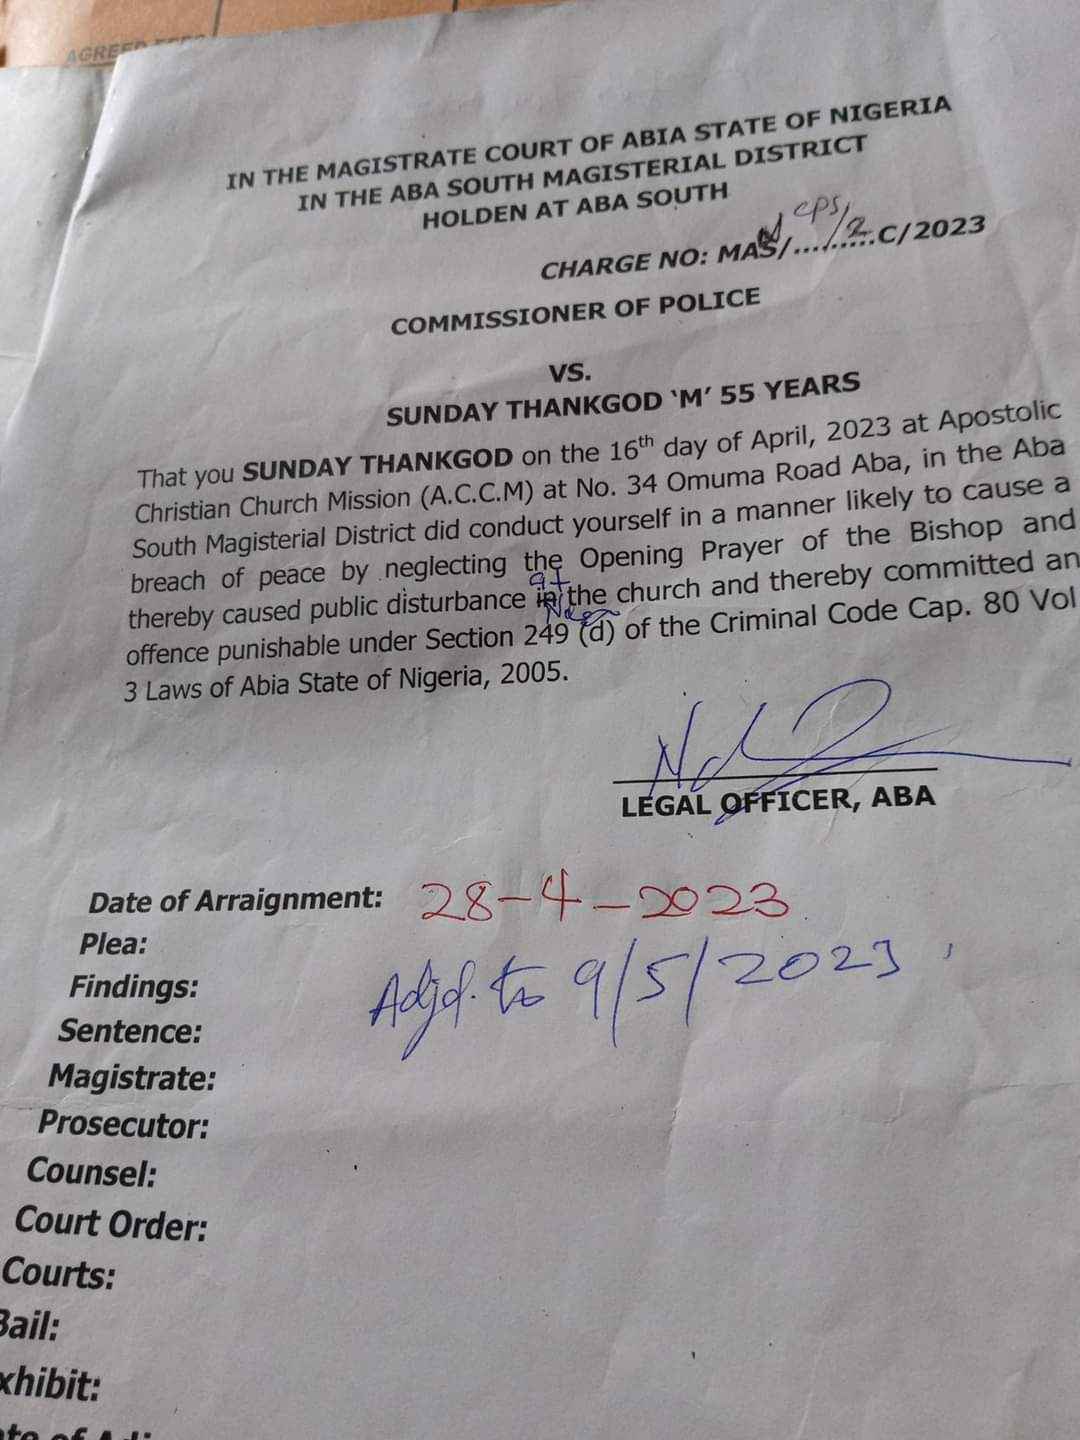 AGREED FEES
IN THE MAGISTRATE COURT OF ABIA STATE OF NIGERIA
IN THE ABA SOUTH MAGISTERIAL DISTRICT
HOLDEN AT ABA SOUTH
CHARGE NO: MAS/.........C/2023
COMMISSIONER OF POLICE
VS.
SUNDAY THANKGOD ‘M’ 55 YEARS
That you SUNDAY THANKGOD on the 16th day of April, 2023 at Apostolic
Christian Church Mission (A.C.C.M) at No. 34 Omuma Road Aba, in the Aba
South Magisterial District did conduct yourself in a manner likely to cause a
breach of peace by neglecting the Opening Prayer of the Bishop and
thereby caused public disturbance at the church and thereby committed an
offence punishable under Section 249 (d) of the Criminal Code Cap. 80 Vol
3 Laws of Abia State of Nigeria, 2005.
LEGAL OFFICER, ABA
Date of Arraignment: 28-4-2023
Plea:
Findings: Adjd. to 9/5/2023
Sentence:
Magistrate:
Prosecutor:
Counsel:
Court Order:
Courts:
Bail:
xhibit: